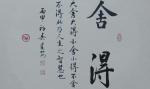 舍得
大舍大得小舍小得不舍
不得此乃人生之智慧也
丙申